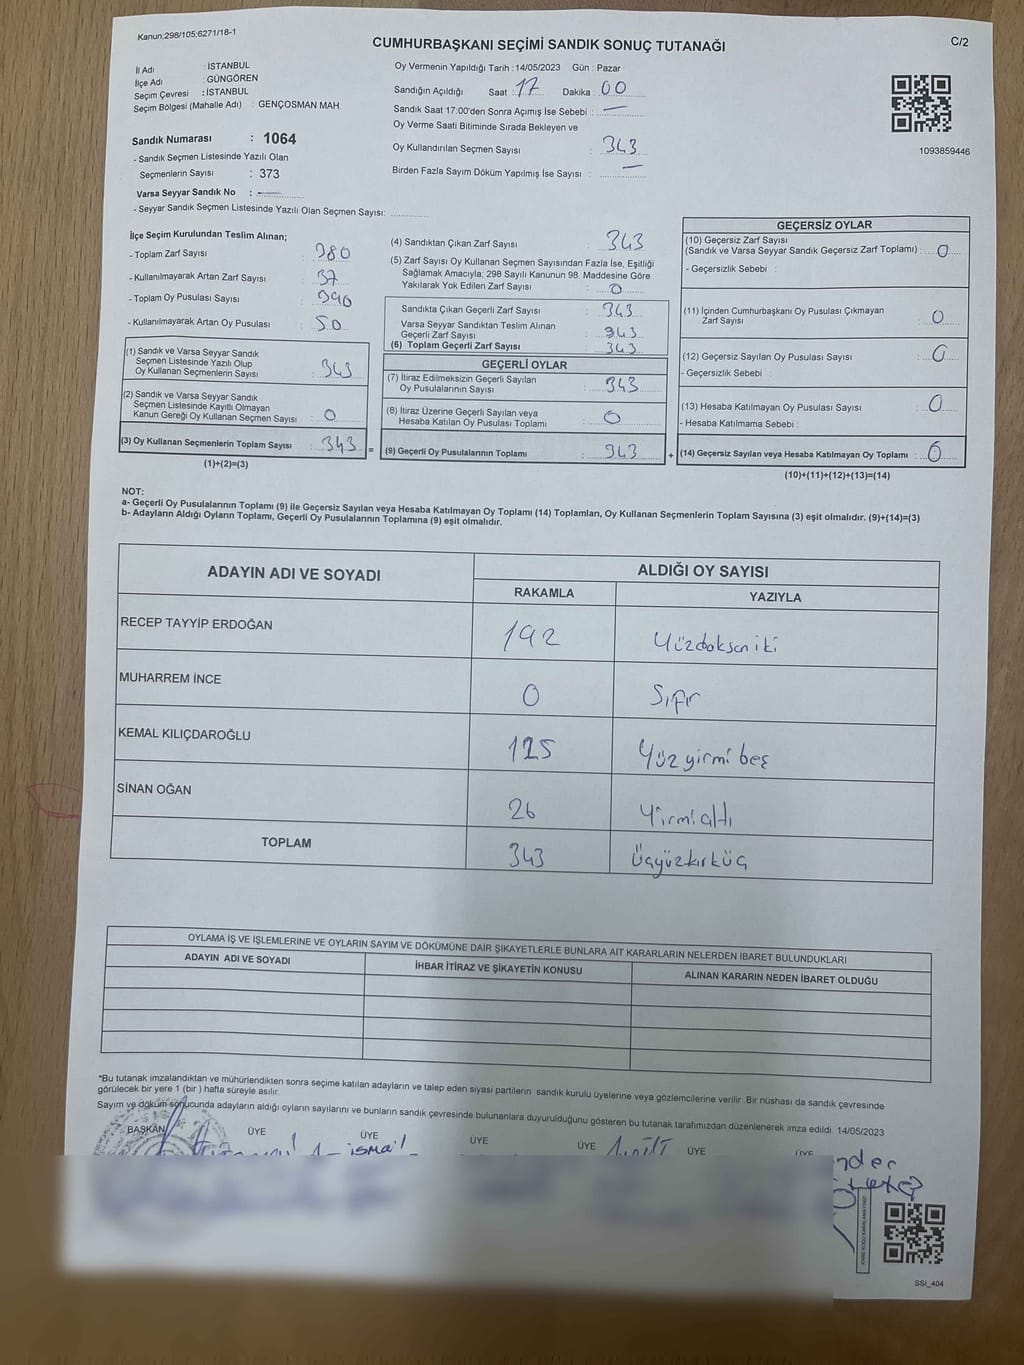 Kanun:298/105;6271/18-1
CUMHURBAŞKANI SEÇİMİ SANDIK SONUÇ TUTANAĞI
C/2
İl Adı : İSTANBUL
İlçe Adı : GÜNGÖREN
Seçim Çevresi : İSTANBUL
Seçim Bölgesi (Mahalle Adı) : GENÇOSMAN MAH.
Oy Vermenin Yapıldığı Tarih : 14/05/2023 Gün : Pazar
Sandığın Açıldığı Saat : 17 Dakika : 00
Sandık Saat 17:00'den Sonra Açımış İse Sebebi : —
Oy Verme Saati Bitiminde Sırada Bekleyen ve
Oy Kullandırılan Seçmen Sayısı : 343
Birden Fazla Sayım Döküm Yapılmış İse Sayısı : —
1093859446
Sandık Numarası : 1064
- Sandık Seçmen Listesinde Yazılı Olan
Seçmenlerin Sayısı : 373
Varsa Seyyar Sandık No : —
- Seyyar Sandık Seçmen Listesinde Yazılı Olan Seçmen Sayısı:
İlçe Seçim Kurulundan Teslim Alınan;
- Toplam Zarf Sayısı : 380
- Kullanılmayarak Artan Zarf Sayısı : 37
- Toplam Oy Pusulası Sayısı : 390
- Kullanılmayarak Artan Oy Pusulası : 50
(1) Sandık ve Varsa Seyyar Sandık
Seçmen Listesinde Yazılı Olup
Oy Kullanan Seçmenlerin Sayısı : 343
(2) Sandık ve Varsa Seyyar Sandık
Seçmen Listesinde Kayıtlı Olmayan
Kanun Gereği Oy Kullanan Seçmen Sayısı : 0
(3) Oy Kullanan Seçmenlerin Toplam Sayısı : 343 =
(1)+(2)=(3)
(4) Sandıktan Çıkan Zarf Sayısı : 343
(5) Zarf Sayısı Oy Kullanan Seçmen Sayısından Fazla İse, Eşitliği
Sağlamak Amacıyla; 298 Sayılı Kanunun 98. Maddesine Göre
Yakılarak Yok Edilen Zarf Sayısı : 0
Sandıkta Çıkan Geçerli Zarf Sayısı : 343
Varsa Seyyar Sandıktan Teslim Alınan
Geçerli Zarf Sayısı : 343
(6) Toplam Geçerli Zarf Sayısı : 343
GEÇERLİ OYLAR
(7) İtiraz Edilmeksizin Geçerli Sayılan
Oy Pusulalarının Sayısı : 343
(8) İtiraz Üzerine Geçerli Sayılan veya
Hesaba Katılan Oy Pusulası Toplamı : 0
(9) Geçerli Oy Pusulalarının Toplamı : 343 +
GEÇERSİZ OYLAR
(10) Geçersiz Zarf Sayısı
(Sandık ve Varsa Seyyar Sandık Geçersiz Zarf Toplamı) : 0
- Geçersizlik Sebebi :
(11) İçinden Cumhurbaşkanı Oy Pusulası Çıkmayan
Zarf Sayısı : 0
(12) Geçersiz Sayılan Oy Pusulası Sayısı : 0
- Geçersizlik Sebebi :
(13) Hesaba Katılmayan Oy Pusulası Sayısı : 0
- Hesaba Katılmama Sebebi :
(14) Geçersiz Sayılan veya Hesaba Katılmayan Oy Toplamı : 0
(10)+(11)+(12)+(13)=(14)
NOT:
a- Geçerli Oy Pusulalarının Toplamı (9) ile Geçersiz Sayılan veya Hesaba Katılmayan Oy Toplamı (14) Toplamları, Oy Kullanan Seçmenlerin Toplam Sayısına (3) eşit olmalıdır. (9)+(14)=(3)
b- Adayların Aldığı Oyların Toplamı, Geçerli Oy Pusulalarının Toplamına (9) eşit olmalıdır.
ADAYIN ADI VE SOYADI
ALDIĞI OY SAYISI
RAKAMLA YAZIYLA
RECEP TAYYİP ERDOĞAN 192 Yüzdoksan iki
MUHARREM İNCE 0 Sıfır
KEMAL KILIÇDAROĞLU 125 Yüz yirmi beş
SİNAN OĞAN 26 Yirmi altı
TOPLAM 343 Üçyüzkırküç
OYLAMA İŞ VE İŞLEMLERİNE VE OYLARIN SAYIM VE DÖKÜMÜNE DAİR ŞİKAYETLERLE BUNLARA AİT KARARLARIN NELERDEN İBARET BULUNDUKLARI
ADAYIN ADI VE SOYADI İHBAR İTİRAZ VE ŞİKAYETİN KONUSU ALINAN KARARIN NEDEN İBARET OLDUĞU
*Bu tutanak imzalandıktan ve mühürlendikten sonra seçime katılan adayların ve talep eden siyasi partilerin sandık kurulu üyelerine veya gözlemcilerine verilir. Bir nüshası da sandık çevresinde
görülecek bir yere 1 (bir ) hafta süreyle asılır.
Sayım ve döküm sonucunda adayların aldığı oyların sayılarını ve bunların sandık çevresinde bulunanlara duyurulduğunu gösteren bu tutanak tarafımızdan düzenlenerek imza edildi. 14/05/2023
BAŞKAN ÜYE ÜYE ÜYE ÜYE ÜYE ÜYE
ismail
SSI_404